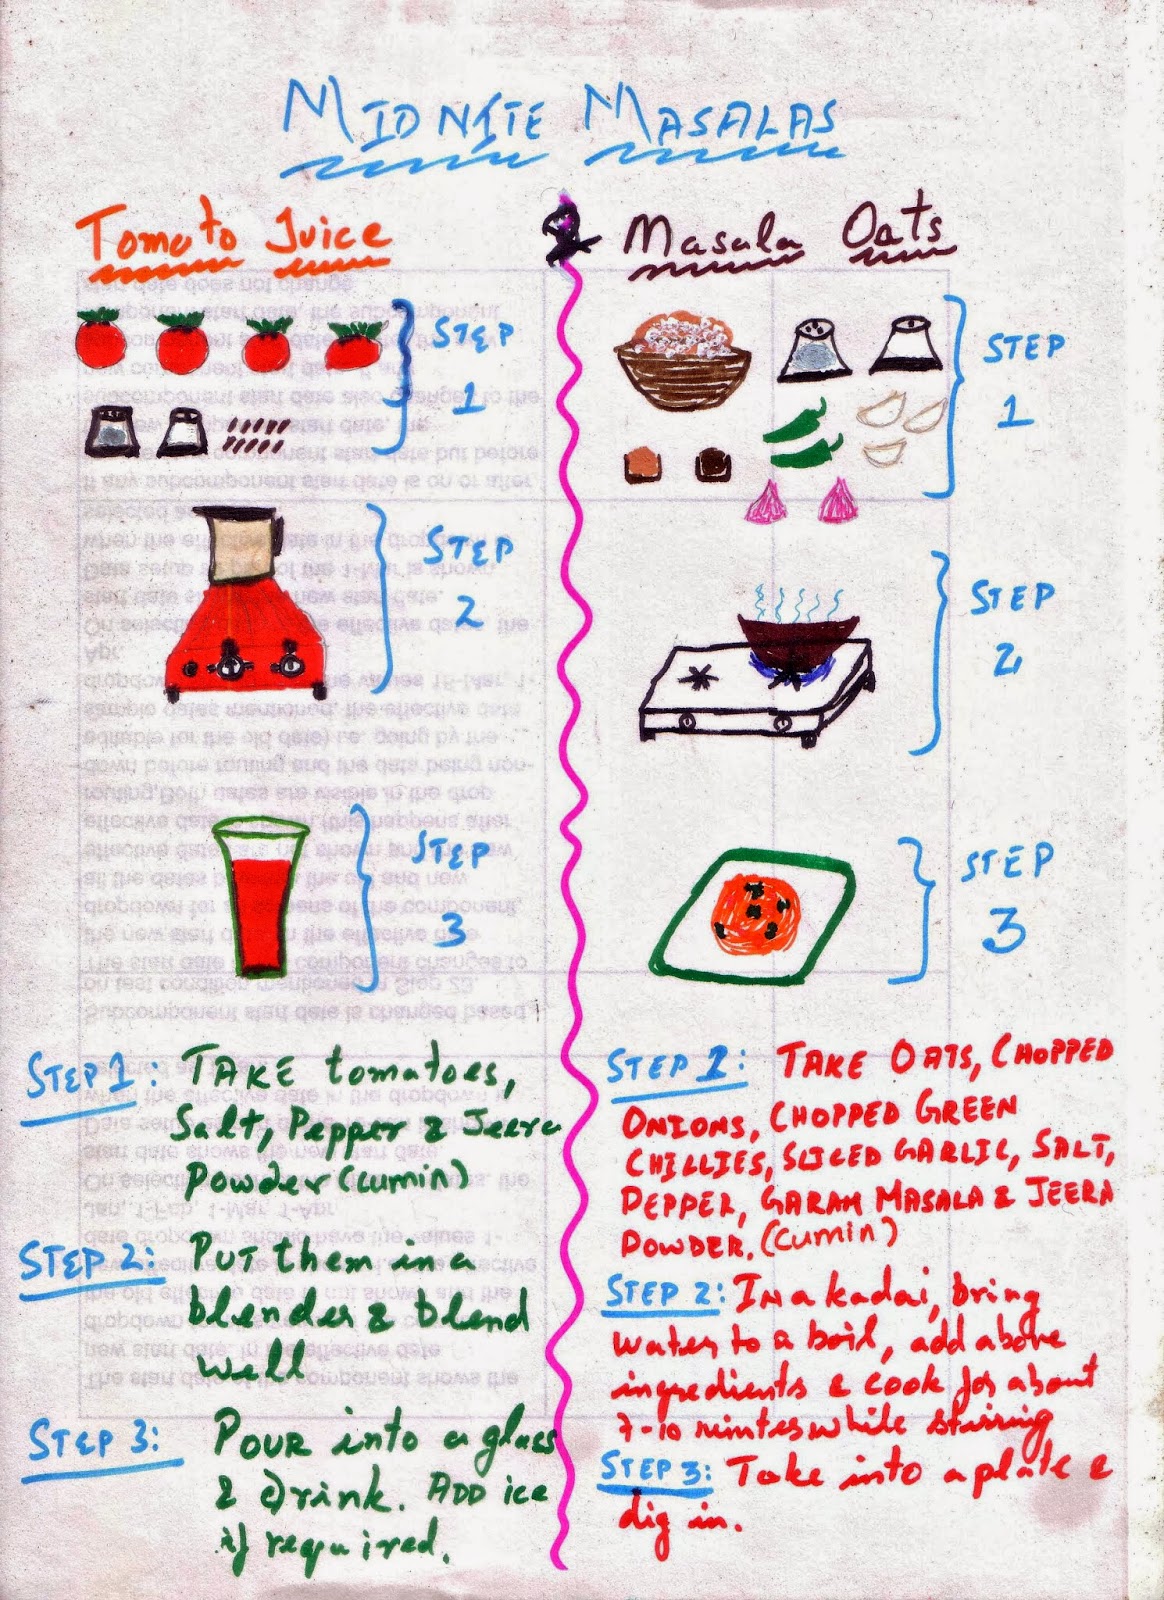 MIDNITE MASALAS
Tomato Juice
STEP
1
STEP
2
STEP
3
STEP 1: TAKE tomatoes,
Salt, Pepper & Jeera
Powder (cumin)
STEP 2: PUT them in a
blender & blend
well
STEP 3: POUR into a glass
& drink. ADD ice
if required.
Masala Oats
STEP
1
STEP
2
STEP
3
STEP 1: TAKE OATS, CHOPPED
ONIONS, CHOPPED GREEN
CHILLIES, SLICED GARLIC, SALT,
PEPPER, GARAM MASALA & JEERA
POWDER. (cumin)
STEP 2: In a kadai, bring
water to a boil, add above
ingredients & cook for about
7-10 minutes while stirring
STEP 3: Take into a plate &
dig in.